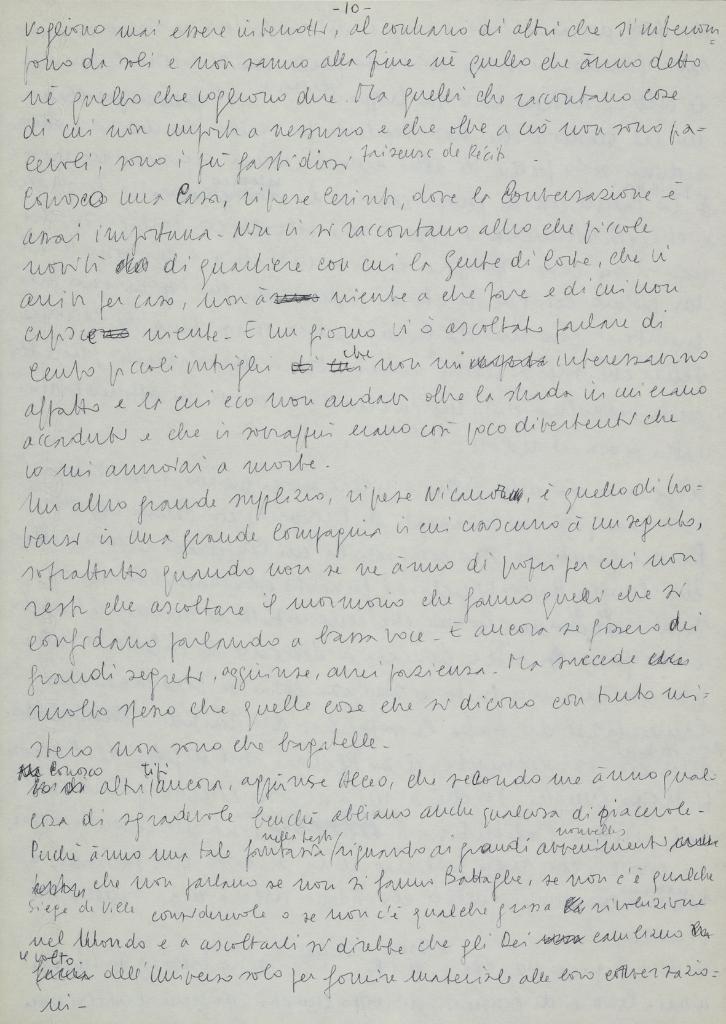 -10-
vogliono mai essere interrotti, al contrario di altri che si interrom=
pono da soli e non sanno alla fine nè quello che ànno detto
nè quello che vogliono dire. Ma quelli che raccontano cose
di cui non importa a nessuno e che oltre a ciò non sono pia=
cevoli, sono i più fastidiosi faiseurs de Récits.
Conosco una Casa, riprese Cerinte, dove la Conversazione è
assai importuna. Non vi si raccontano altro che piccole
novità di quartiere con cui la Gente di Corte, che vi
arriva per caso, non à niente a che fare e di cui non
capisce niente. E un giorno vi ò ascoltato parlare di
cento piccoli intrighi che non mi interessavano
affatto e la cui eco non andava oltre la strada in cui erano
accaduti e che in sovrappiù erano così poco divertenti che
io mi annoiai a morte.
Un altro grande supplizio, riprese Nicanor, è quello di tro=
varsi in una grande Compagnia in cui ciascuno à un segreto,
soprattutto quando non se ne ànno di propri per cui non
resta che ascoltare il mormorio che fanno quelli che si
confidano parlando a bassa voce. E ancora se fossero dei
grandi segreti, aggiunse, avrei pazienza. Ma succede
molto spesso che quelle cose che si dicono con tanto mi=
stero non sono che bagatelle.
Conosco altri tipi ancora, aggiunse Alceo, che secondo me ànno qual=
cosa di sgradevole benchè abbiano anche qualcosa di piacevole.
Perchè ànno una tale fantasia nella testa riguardo ai grandi avvenimenti nouvelles
che non parlano se non si fanno Battaglie, se non c'è qualche
Siege de Ville considerevole o se non c'è qualche grossa rivoluzione
nel Mondo e a ascoltarli si direbbe che gli Dei cambiano
il volto dell'Universo solo per fornire materiale alle loro conversazio=
ni.